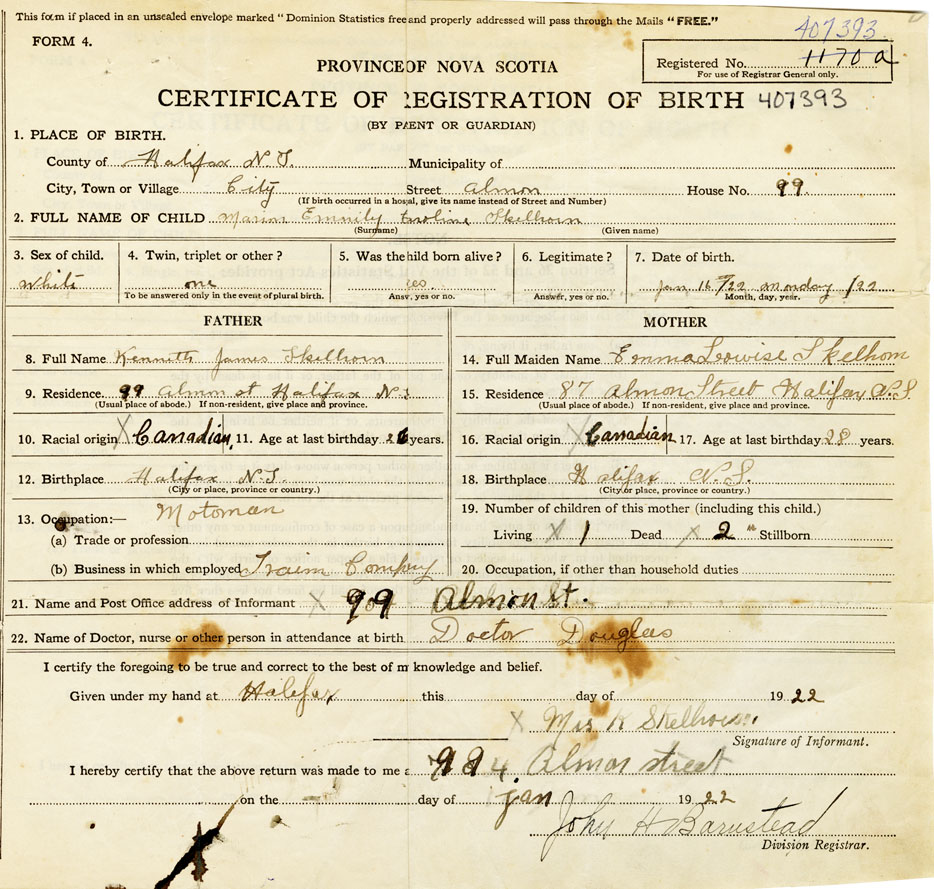 This form if placed in an unsealed envelope marked "Dominion Statistics free and properly addressed will pass through the Mails "FREE."
407393
FORM 4.
Registered No. 1170 a
For use of Registrar General only.
PROVINCE OF NOVA SCOTIA
CERTIFICATE OF REGISTRATION OF BIRTH 407393
(BY PARENT OR GUARDIAN)
1. PLACE OF BIRTH.
County of Halifax N.S. Municipality of
City, Town or Village City Street Almon House No. 99
(If birth occurred in a hospital, give its name instead of Street and Number)
2. FULL NAME OF CHILD Marion Emmily Skelhorn
(Surname) (Given name)
3. Sex of child. 4. Twin, triplet or other? 5. Was the child born alive? 6. Legitimate? 7. Date of birth.
White one yes Jan 16th/22 monday /22
To be answered only in the event of plural birth. Ansv, yes or no. Answer, yes or no. Month, day, year.
FATHER MOTHER
8. Full Name Kenneth James Skelhorn
14. Full Maiden Name Emma Leowise Skelhorn
9. Residence. 99 Almon st Halifax N.S
15. Residence 87 Almon Street Halifax N.S
(Usual place of abode.) If non-resident, give place and province.
(Usual place of abode.) If non-resident, give place and province.
10. Racial origin X Canadian 11. Age at last birthday 26 years.
16. Racial origin X Canadian 17. Age at last birthday 28 years.
12. Birthplace Halifax N.S.
18. Birthplace Halifax N.S.
(City or place, province or country.)
(City or place, province or country.)
13. Occupation:— Motoman
19. Number of children of this mother (including this child.)
(a) Trade or profession
Living X 1 Dead X 2 " Stillborn
(b) Business in which employed Traim Company
20. Occupation, if other than household duties
21. Name and Post Office address of Informant X 99 Almon st.
22. Name of Doctor, nurse or other person in attendance at birth Doctor Douglas
I certify the foregoing to be true and correct to the best of m knowledge and belief.
Given under my hand at Halifax this day of 19 22
X Mrs K Skelhorn
Signature of Informant.
I hereby certify that the above return was made to me a 994. Almon street
on the day of Jan 19 22
John H Barnstead
Division Registrar.